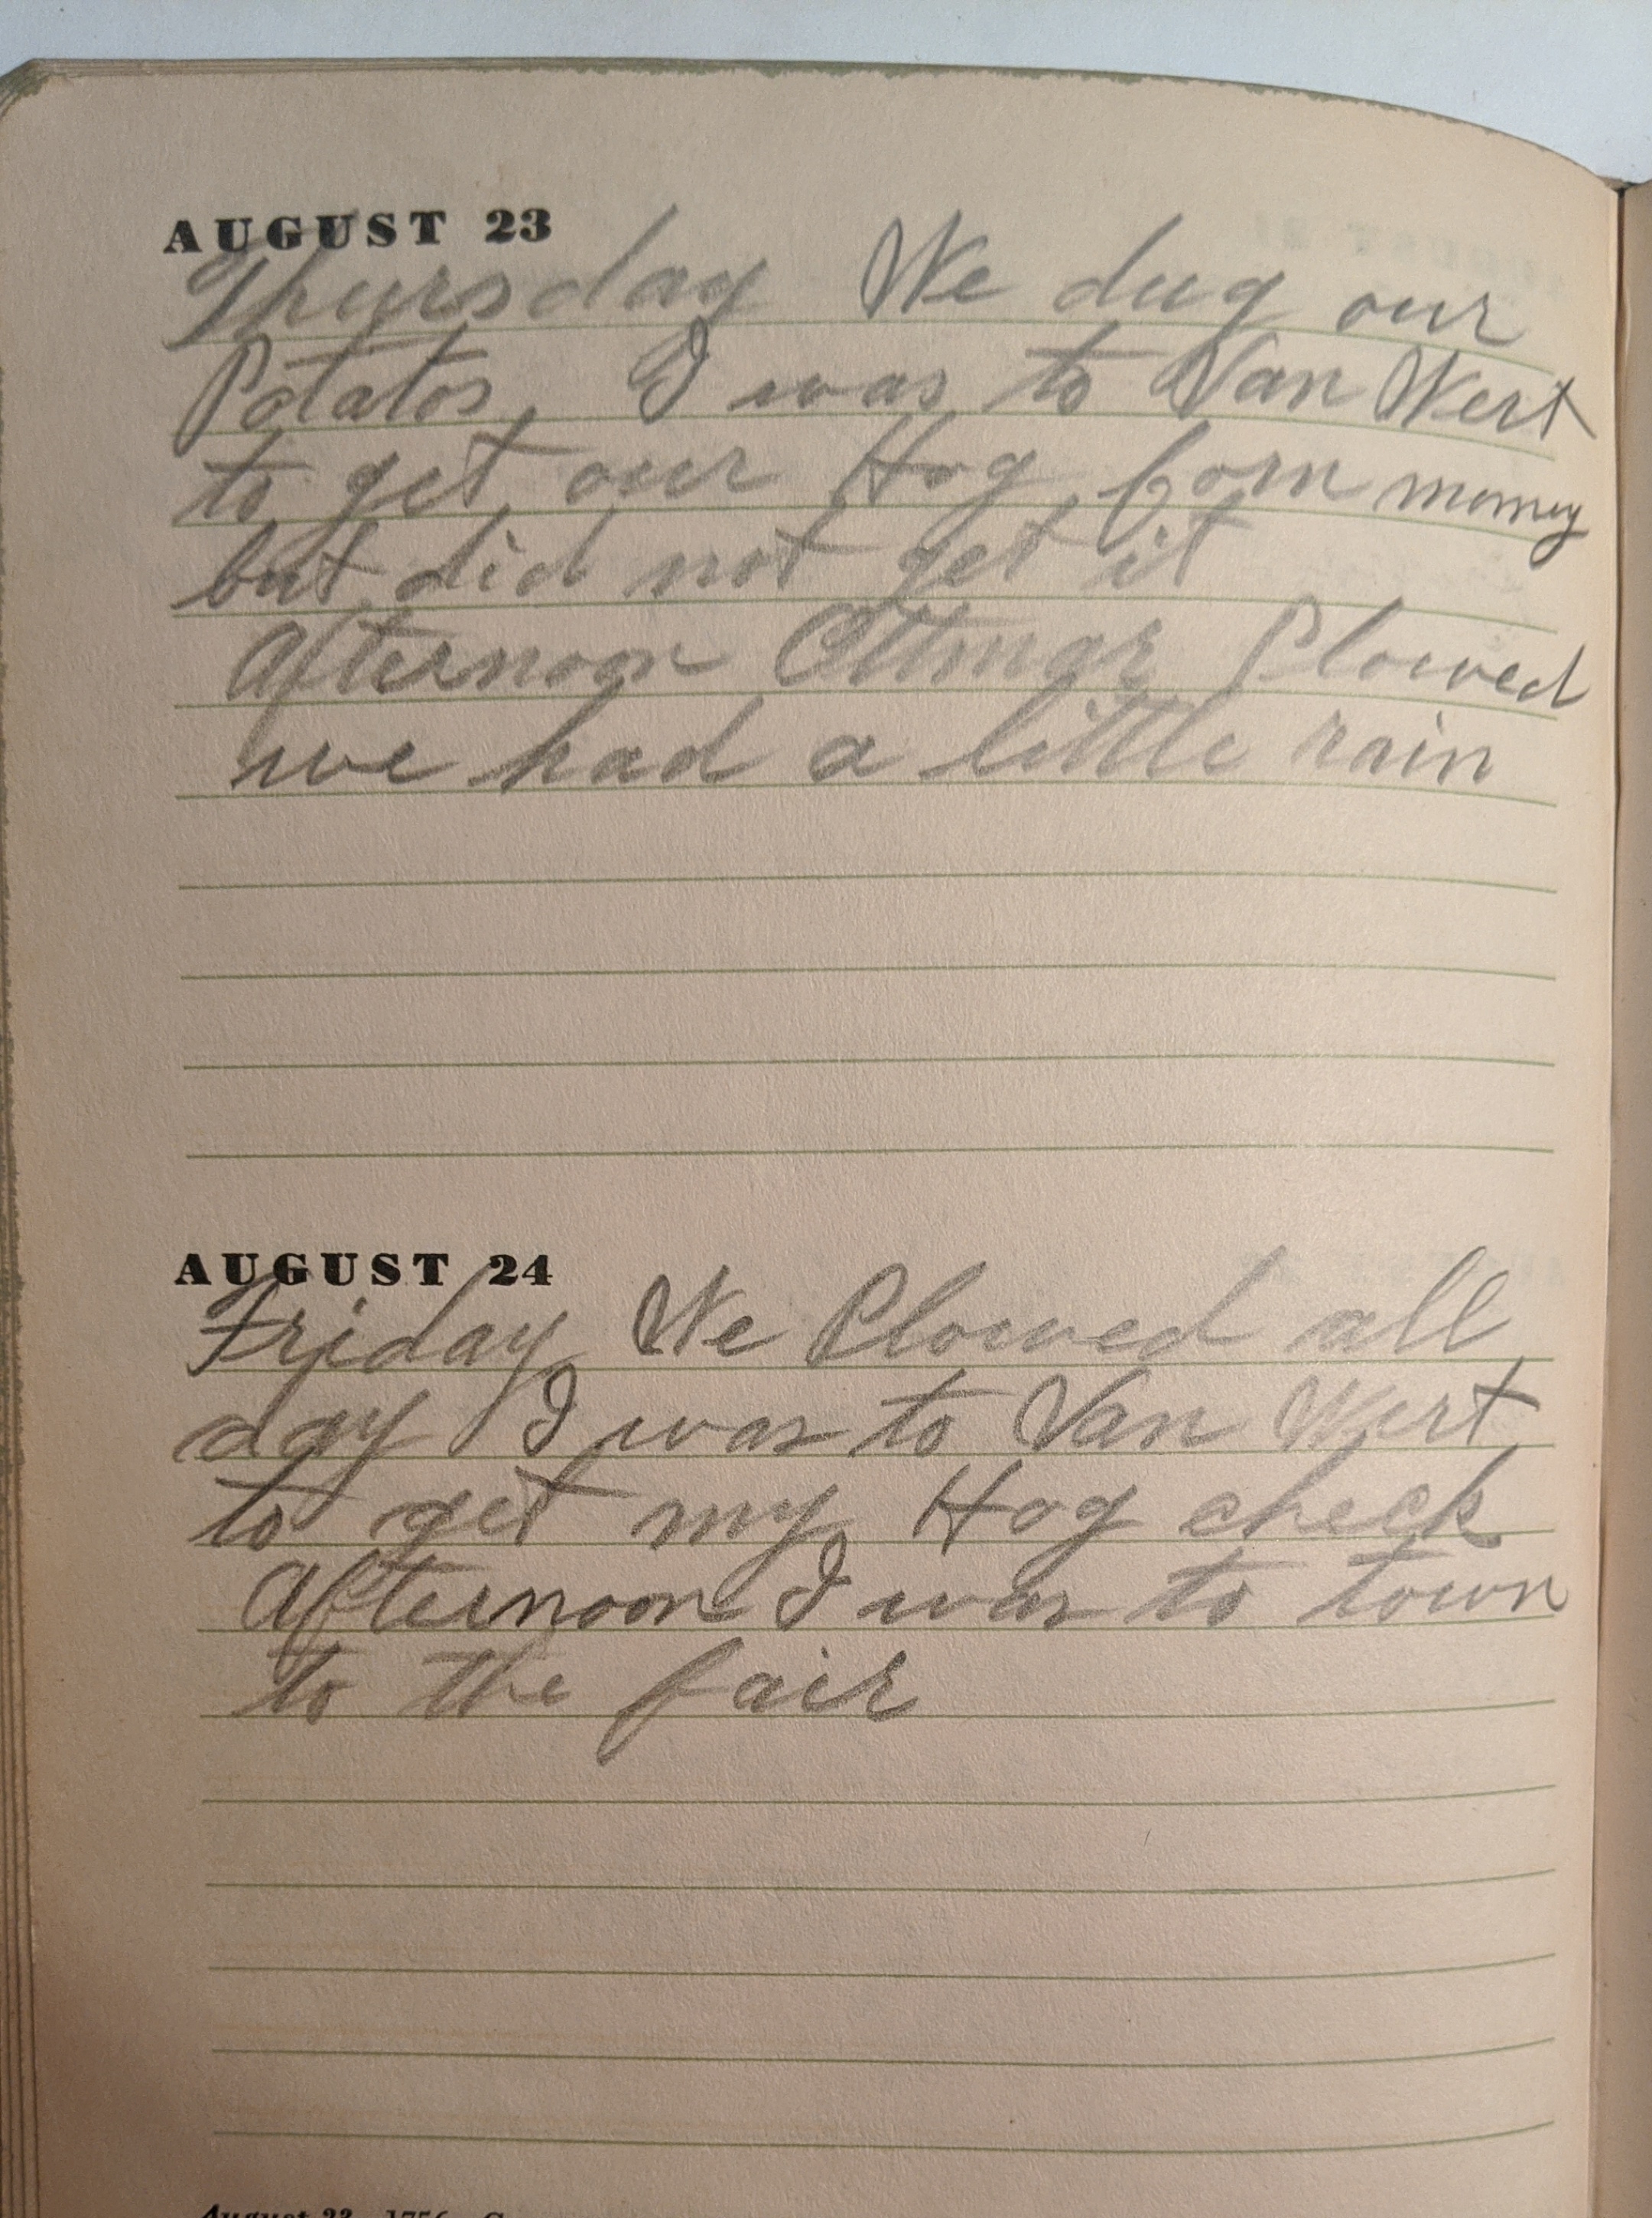 AUGUST 23
Thursday We dug our
Potatos, I was to Van Wert
to get our Hog Corn money
but did not get it
Afternoon Ottmar Plowed
we had a little rain
AUGUST 24
Friday We Plowed all
day I was to Van Wert
to get my Hog check
Afternoon I was to town
to the fair